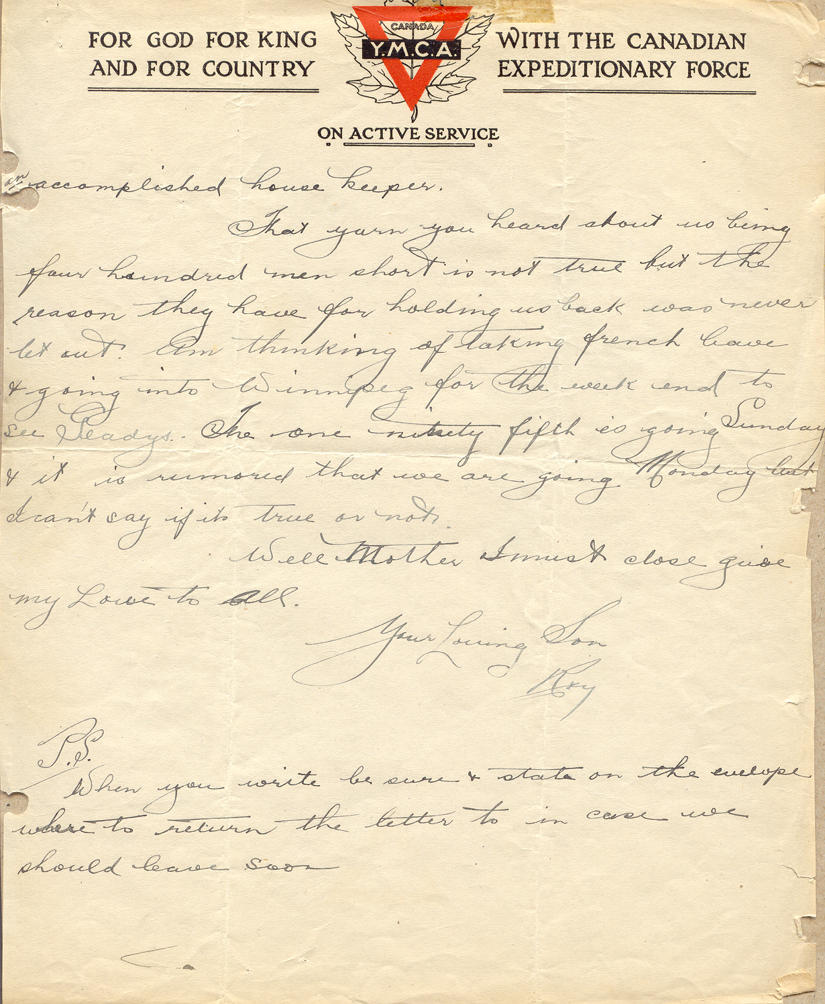 FOR GOD FOR KING
AND FOR COUNTRY
CANADA
Y.M.C.A.
WITH THE CANADIAN
EXPEDITIONARY FORCE
ON ACTIVE SERVICE
an accomplished house keeper.
That yarn you heard about us being
four hundred men short is not true but the
reason they have for holding us back was never
let out. Am thinking of taking french leave
& going into Winnipeg for the week end to
see Gladys. The one ninety fifth is going Sunday
& it is rumored that we are going Monday but
I can't say if its true or not.
Well Mother I must close give
my Love to All.
Your Loving Son
Roy
P.S.
When you write be sure & state on the envelope
where to return the letter to in case we
should leave soon